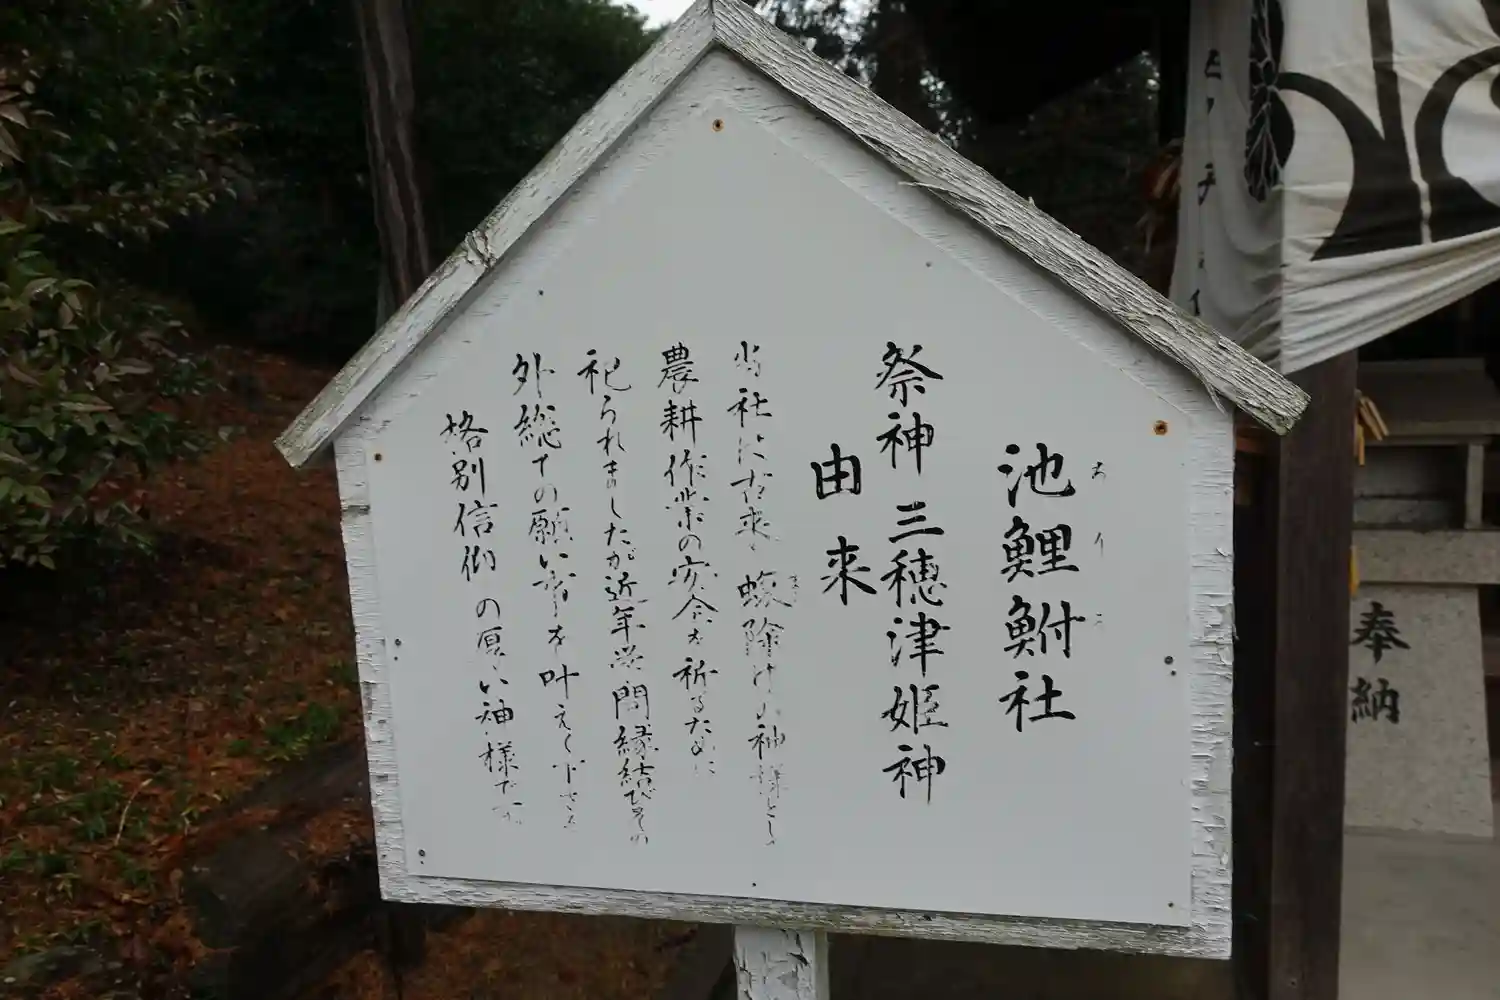 池鯉鮒社
祭神 三穂津姫神
由来
当社は古来、蝮除けの神様とし
農耕作業の安全を祈るために
祀られましたが近年学問縁結びその
外総ての願い事を叶えて下さる
格別信仰の厚い神様です。
奉納